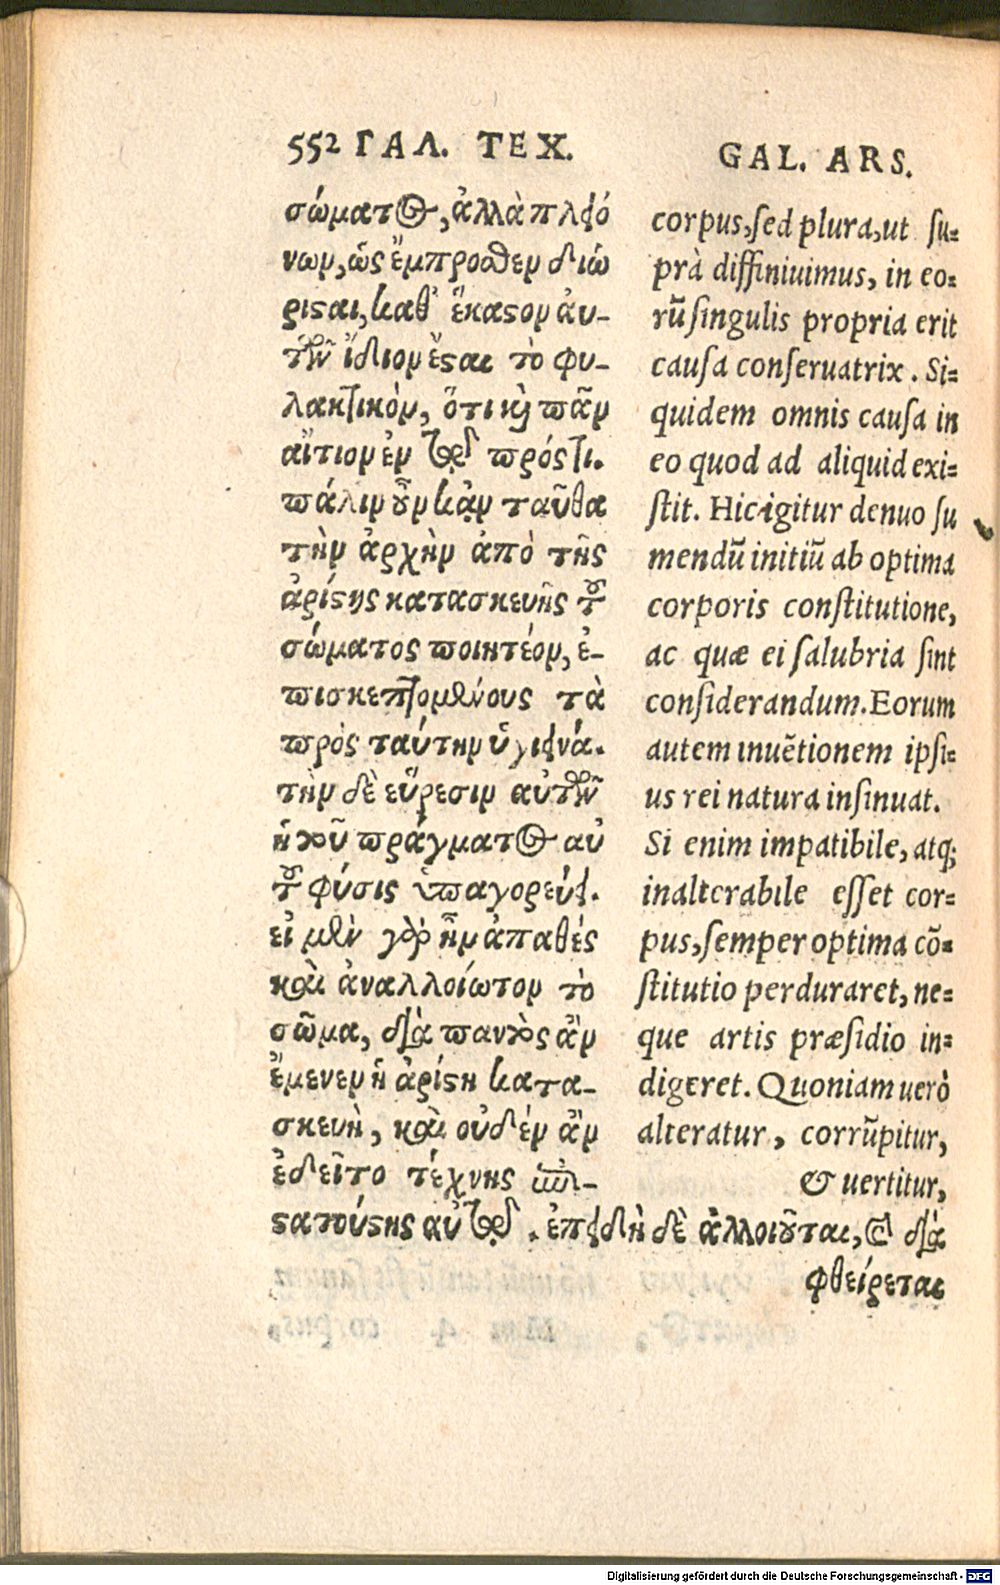 552 ΓΑΛ. ΤΕΧ.
σώματος, ἀλλὰ πλειό
νων, ὡς ἔμπροσθεν διώ
ρισαι, καθ' ἕκαστον ἀυ-
τῶν ἴδιον ἔσται τὸ φυ-
λακτικὸν, ὅτι καὶ πᾶν
αἴτιον ἐν τῷ πρός τι.
πάλιν οὖν κᾀν ταῦθα
τὴν ἀρχὴν ἀπὸ τῆς
ἀρίστης κατασκευῆς τοῦ
σώματος ποιητέον, ἐ-
πισκεπτομένους τὰ
πρὸς ταύτην ὑγιεινά.
τὴν δὲ εὕρεσιν αὐτῶν
ἡ τοῦ πράγματος αὐ
τοῦ φύσις ὑπαγορεύει.
εἰ μὲν γὰρ ἦν ἀπαθές
καὶ ἀναλλοίωτον τὸ
σῶμα, διὰ παντὸς ἂν
ἔμενεν ἡ ἀρίστη κατα-
σκευὴ, καὶ οὐδέν ἂν
ἐδεῖτο τέχνης ἐπι-
στατούσης αὐτῷ. ἐπειδὴ δὲ ἀλλοιοῦται, καὶ δια
φθείρεται
GAL. ARS.
corpus, sed plura, ut su=
prà diffiniuimus, in eo=
rũ singulis propria erit
causa conseruatrix. Si=
quidem omnis causa in
eo quod ad aliquid exi=
stit. Hic igitur denuo su
mendũ initiũ ab optima
corporis constitutione,
ac quæ ei salubria sint
considerandum. Eorum
autem inuẽtionem ipsi=
us rei natura insinuat.
Si enim impatibile, atq;
inalterabile esset cor=
pus, semper optima cõ=
stitutio perduraret, ne=
que artis præsidio in=
digeret. Quoniam uerò
alteratur, corrũpitur,
& uertitur,
Digitalisierung gefördert durch die Deutsche Forschungsgemeinschaft - DFG